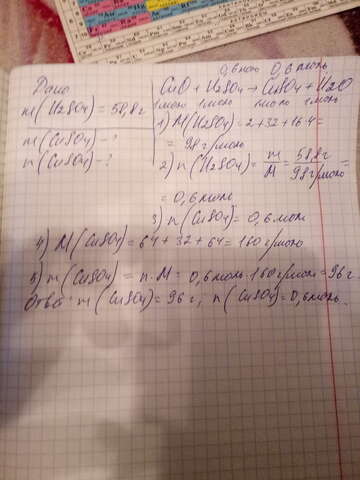 Дано
m(H₂SO₄) = 58,8 г
m(CuSO₄) - ?
n(CuSO₄) - ?
0,6моль 0,6 моль
CuO + H₂SO₄ → CuSO₄ + H₂O
1моль 1моль 1моль 1моль
1) M(H₂SO₄) = 2+32+16·4=
= 98 г/моль
2) n(H₂SO₄) = m/M = 58,8г/98г/моль =
= 0,6 моль
3) n(CuSO₄) = 0,6 моль
4) M(CuSO₄) = 64+32+64 = 160 г/моль
5) m(CuSO₄) = n·M = 0,6моль·160г/моль=96г.
Ответ: m(CuSO₄) = 96 г; n(CuSO₄)=0,6моль.